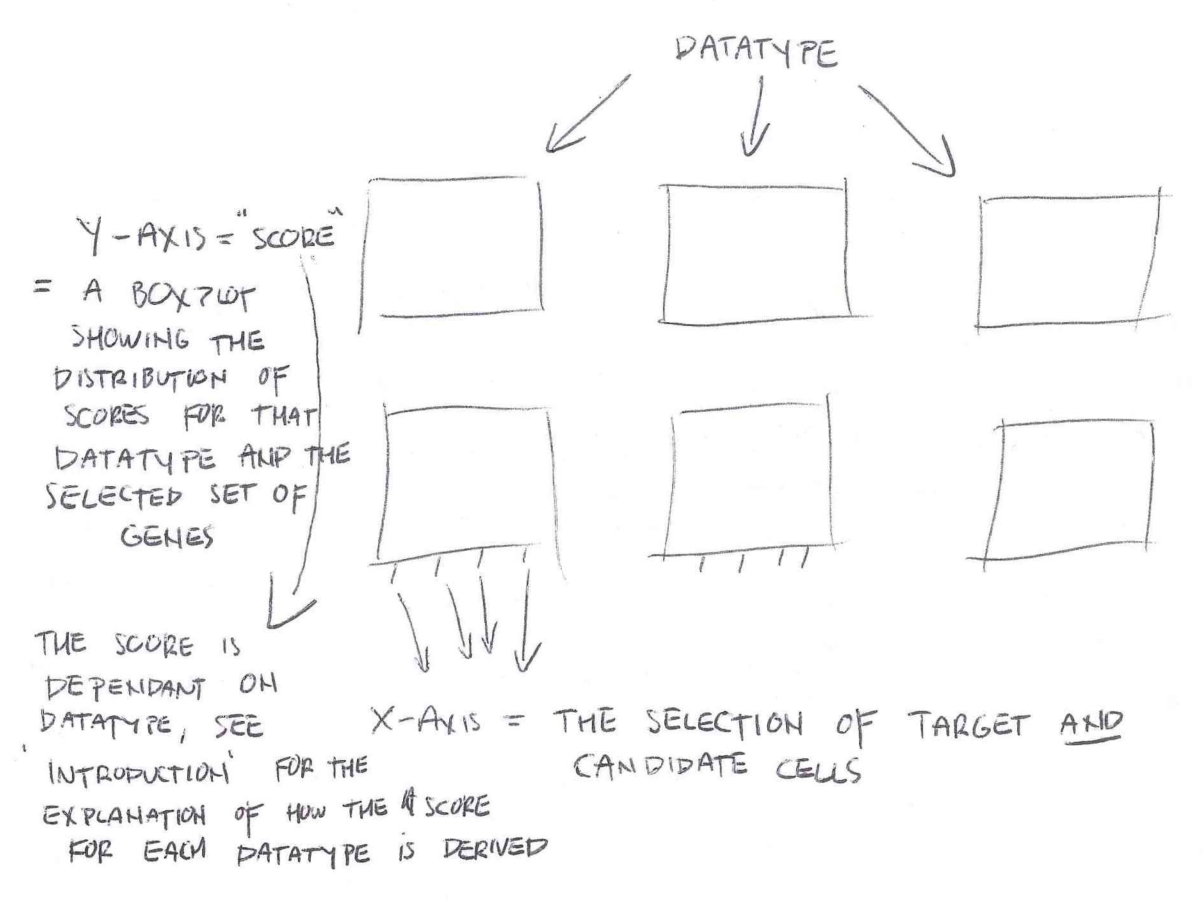 DATATYPE
Y-AXIS = "SCORE"
= A BOXPLOT
SHOWING THE
DISTRIBUTION OF
SCORES FOR THAT
DATATYPE AND THE
SELECTED SET OF
GENES
THE SCORE IS
DEPENDANT ON
DATATYPE, SEE
'INTRODUCTION' FOR THE
EXPLANATION OF HOW THE SCORE
FOR EACH DATATYPE IS DERIVED
X-AXIS = THE SELECTION OF TARGET AND
CANDIDATE CELLS